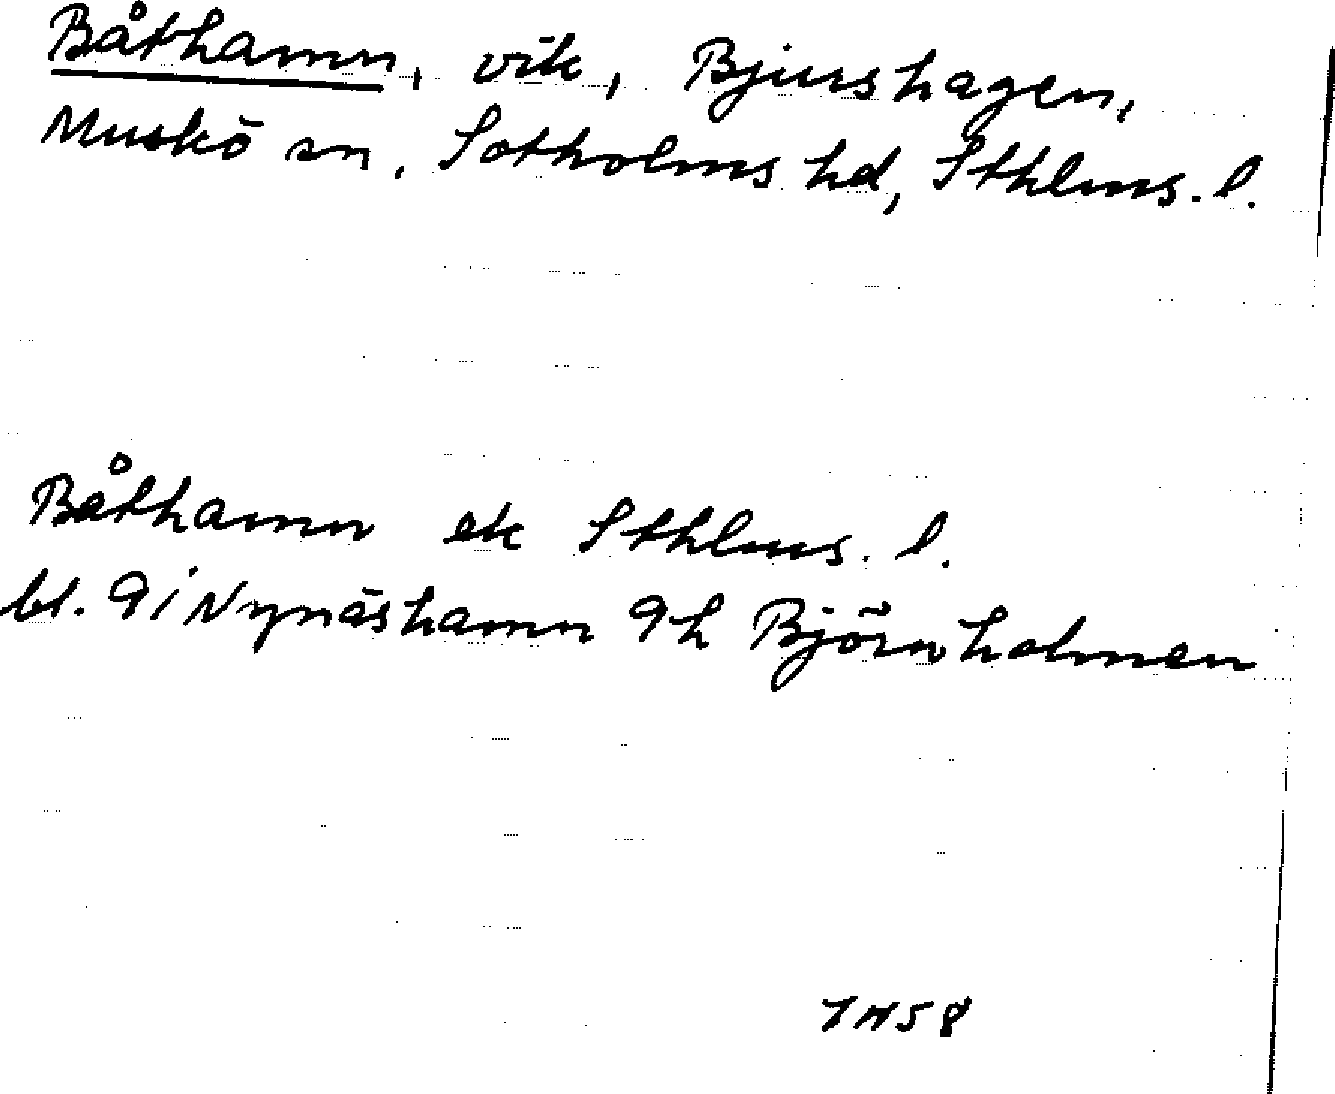 Båthamn, vik, Bjurshagen,
Muskö sn, Sotholms hd, Sthlms. l.
Båthamn ek Sthlms. l.
bl. 9i Nynäshamn 9h Björnholmen